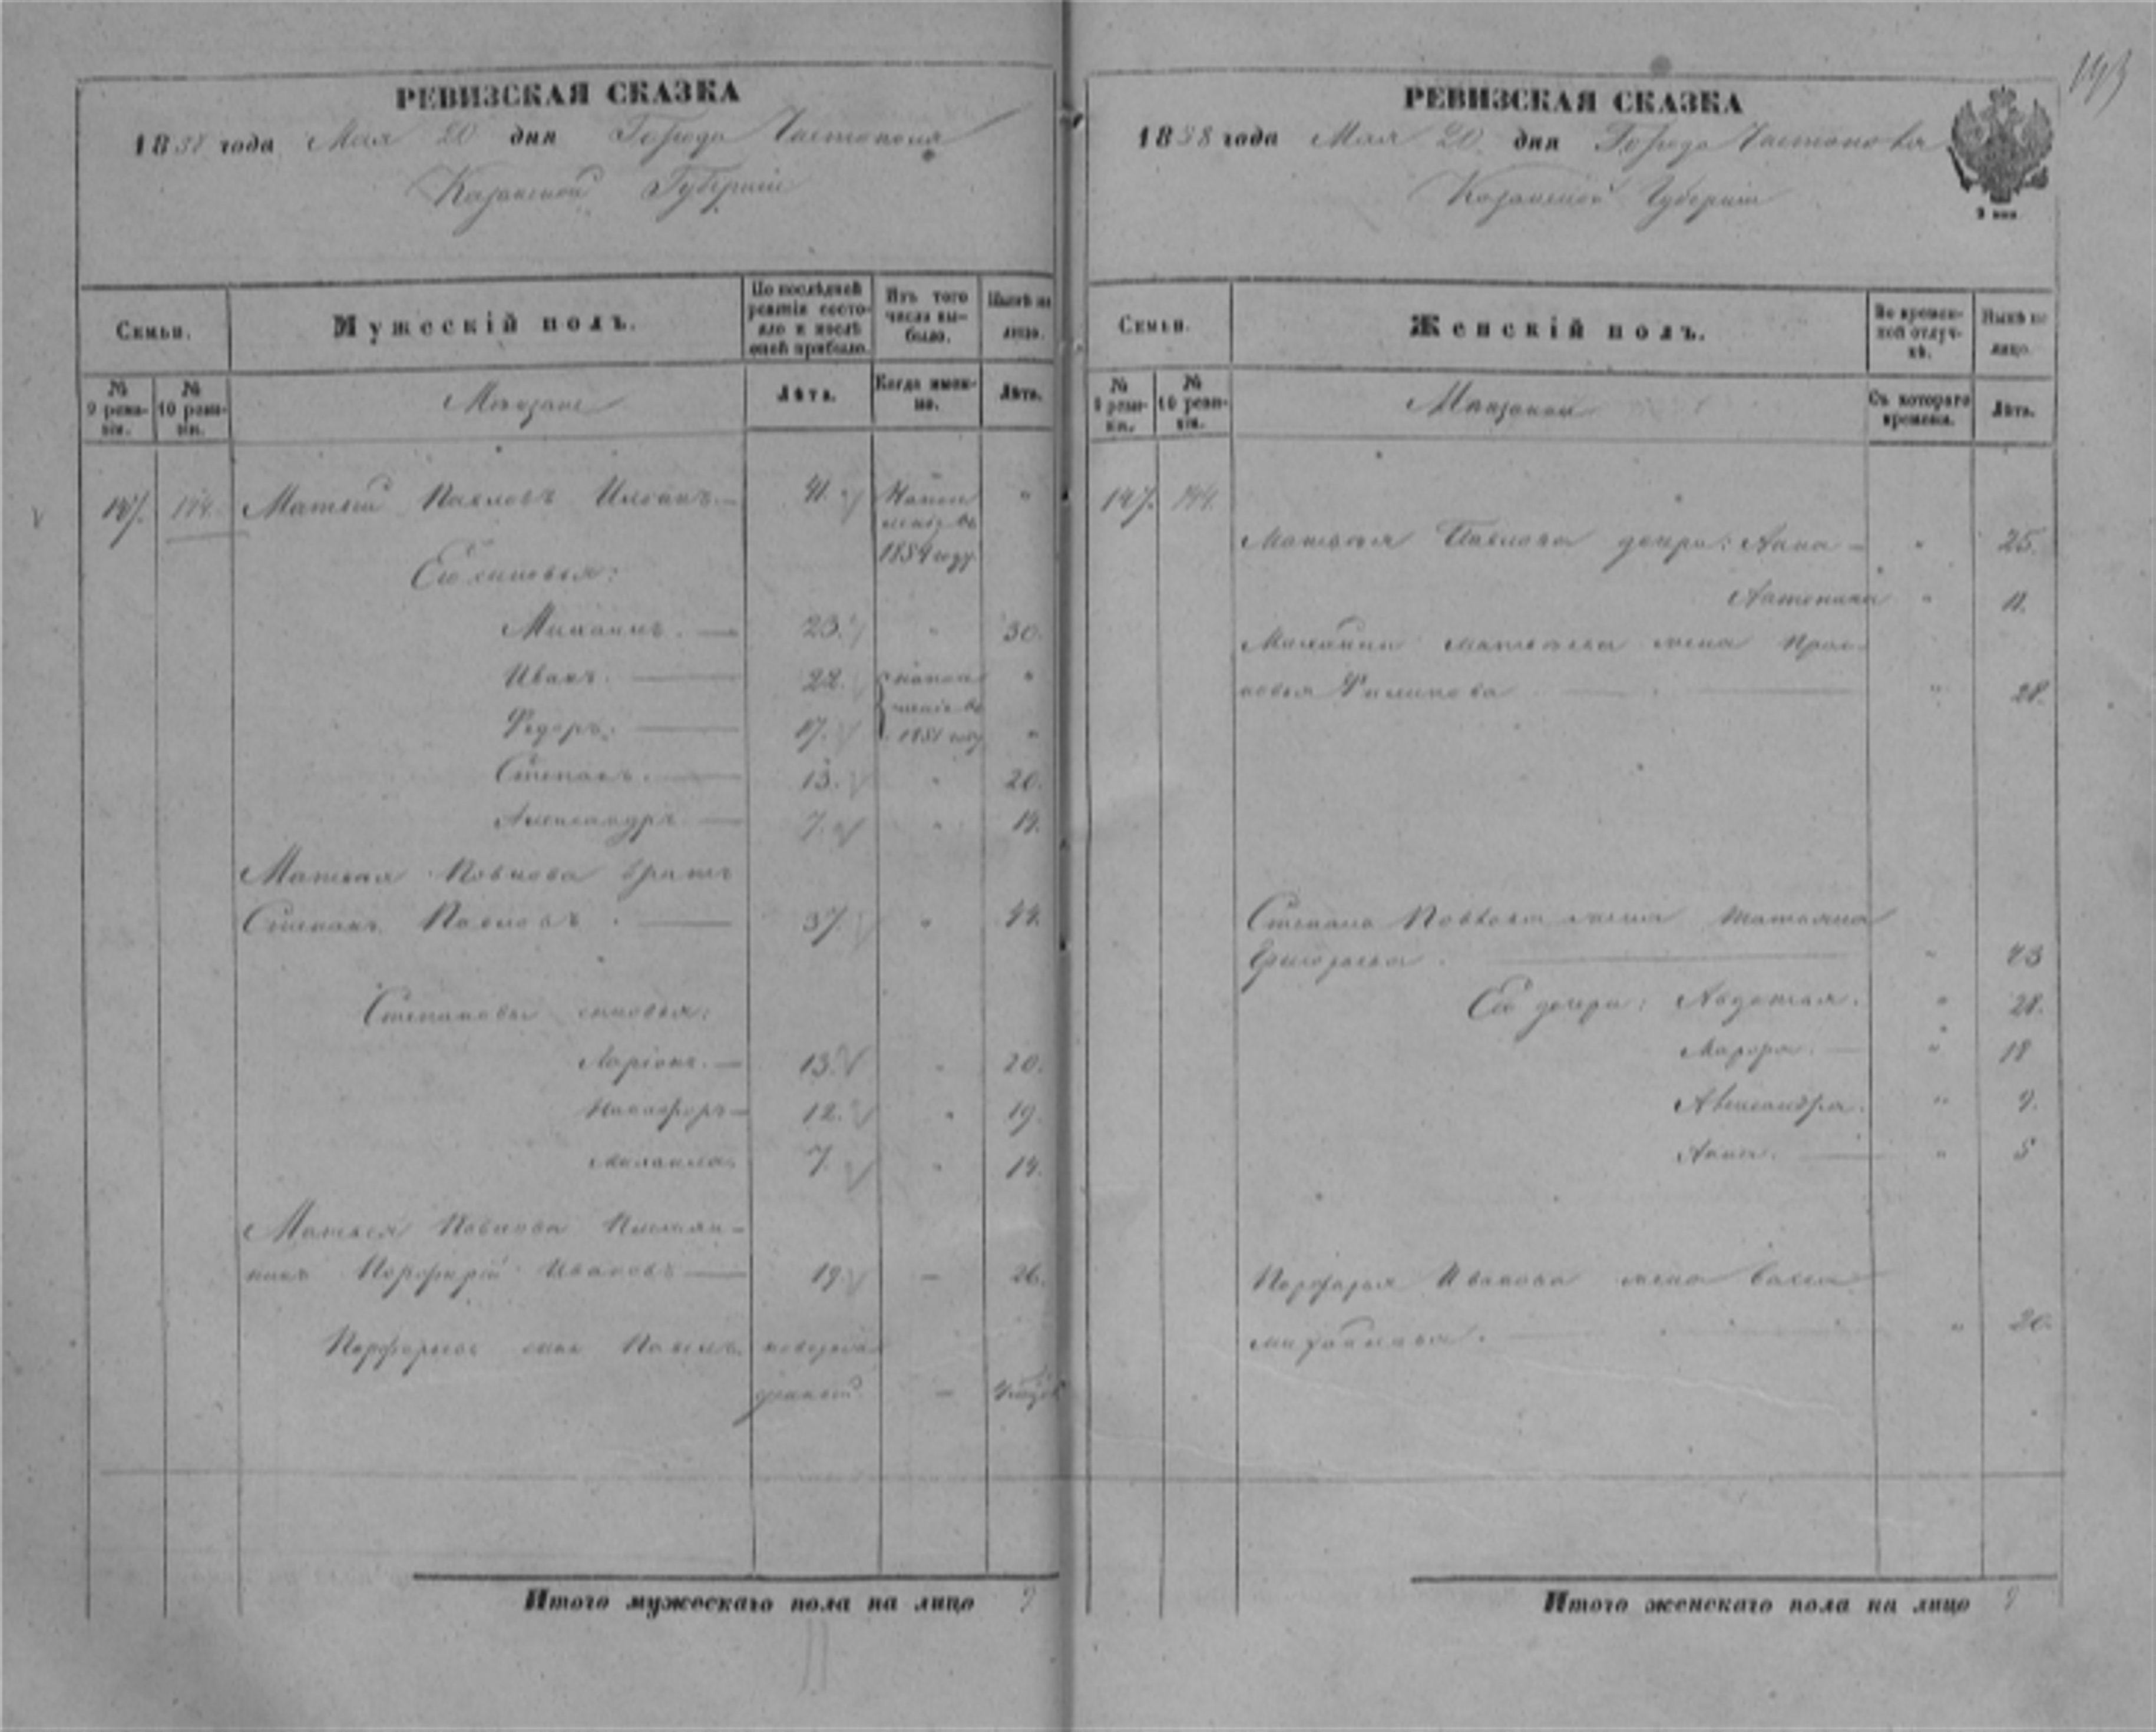 193
РЕВИЗСКАЯ СКАЗКА
1858 года Мая 20 дня Города Чистополя
Казанской Губернiи
Семьи.
Мужескiй полъ.
По последней ревизiи состояло и послѣ оной прибыло.
Изъ того числа выбыло.
Нынѣ на лицо.
№ 9 ревизiи.
№ 10 ревизiи.
Лѣта.
Когда именно.
Лѣта.
147. 144. Матвей Павловъ 41.
1854 году
Его сыновья:
Михаилъ. 23. " 30.
Иванъ. 22. "
Федоръ. 17. 1851 году "
Степанъ. 13. " 20.
Александръ 7. " 14.
Матвея Павлова братъ
Степанъ Павловъ 37. " 44.
Степановы сыновья:
Ларiонъ. 13. " 20.
Никифоръ 12. " 19.
Михаила 7. " 14.
Матвея Павлова Племян-
никъ Порфирiй Ивановъ 19. — 26.
Порфирьев сынъ Павелъ новорож-
денной —
Итого мужескаго пола на лицо 9
РЕВИЗСКАЯ СКАЗКА
1858 года Мая 20 дня Города Чистополя
Казанской Губернiи
Семьи.
Женскiй полъ.
Во временной отлучкѣ.
Нынѣ на лицо.
№ 9 ревизiи.
№ 10 ревизiи.
Съ котораго времени.
Лѣта.
147. 144.
Матвея Павлова дочери: Анна " 25.
" 11.
Михайлы Матвеева жена Прас-
ковья Филипова " 28.
Степана Павлова жена Татьяна
Григорьева. " 43
Его дочери: Авдотья. " 28.
" 18
Александра. " 9.
Анна. " 5
Порфирья Иванова жена
Михайлова. " 20.
Итого женскаго пола на лицо 9